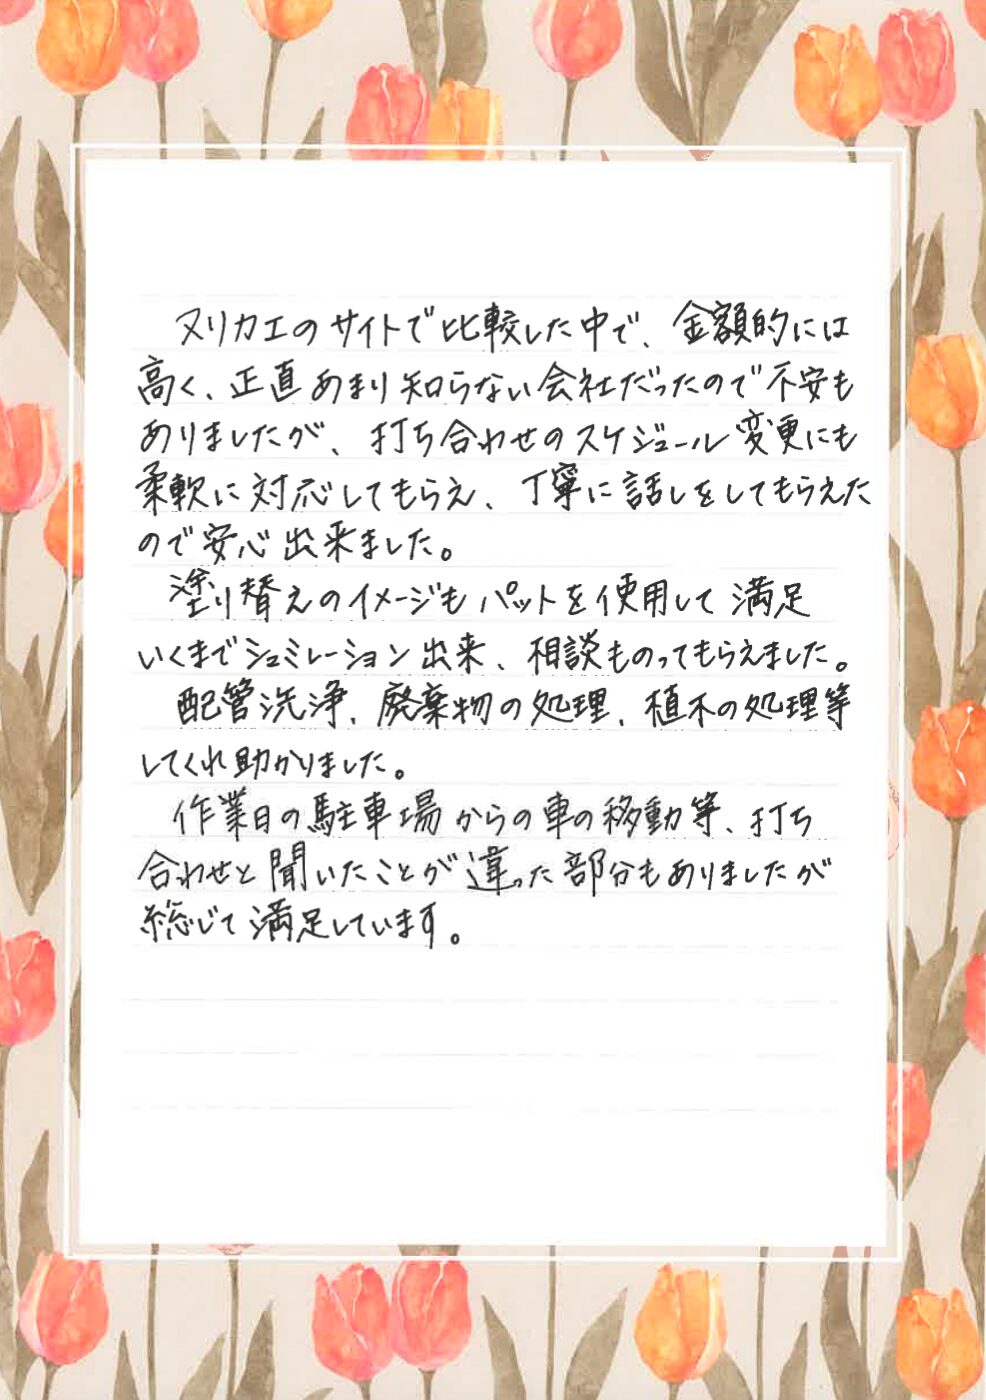 ヌリカエのサイトで比較した中で、金額的には
高く、正直あまり知らない会社だったので不安も
ありましたが、打ち合わせのスケジュール変更にも
柔軟に対応してもらえ、丁寧に話しをしてもらえた
ので安心出来ました。
塗り替えのイメージもパットを使用して満足
いくまでシュミレーション出来、相談ものってもらえました。
配管洗浄、廃棄物の処理、植木の処理等
してくれ助かりました。
作業日の駐車場からの車の移動等、打ち
合わせと聞いたことが違った部分もありましたが
総じて満足しています。